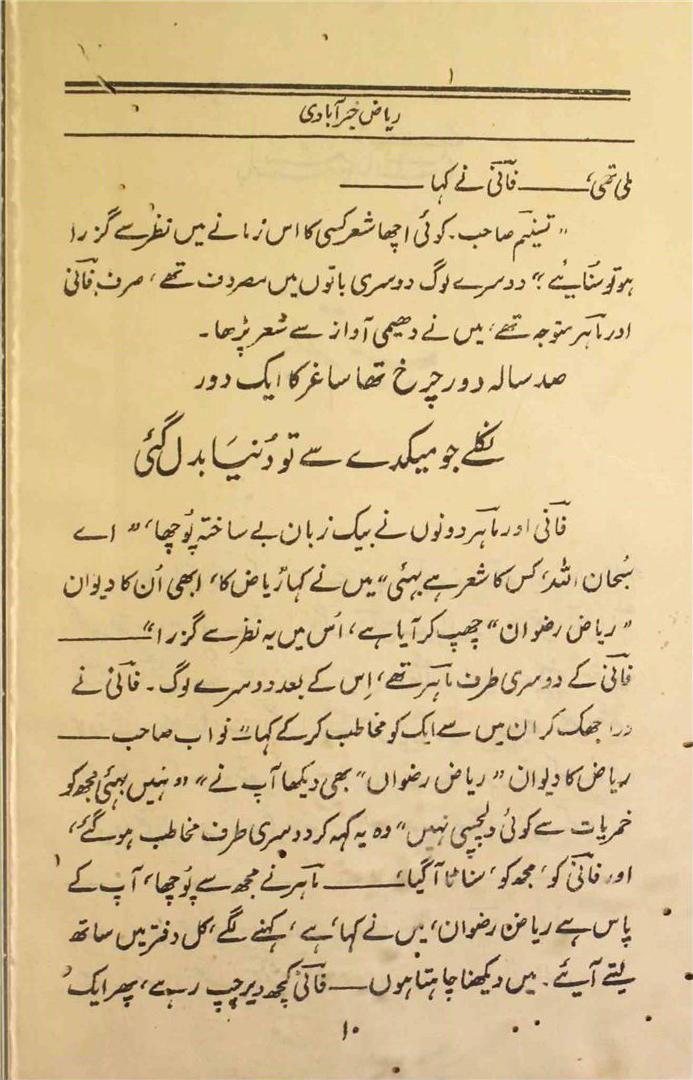 ریاض خیرآبادی
ملی تھی، ــــــ فانیؔ نے کہا ــــــ
”تسنیمؔ صاحب۔ کوئی اچھا شعر کسی کا اس زمانے میں نظر سے گزرا
ہو تو سُنایئے؟“ دوسرے لوگ دوسری باتوں میں مصروف تھے، صرف فانیؔ
اور ماہرؔ متوجہ تھے، میں نے دھیمی آواز سے شعر پڑھا۔
صد سالہ دورِ چرخ تھا ساغر کا ایک دور
نکلے جو میکدے سے تو دُنیا بدل گئی
فانیؔ اور ماہرؔ دونوں نے بیک زبان بے ساختہ پُوچھا، ”اے
سُبحان اللہ، کس کا شعر ہے بھئی“ میں نے کہا ”ریاض کا، ابھی اُن کا دیوان
”ریاض رضوان“ چھپ کر آیا ہے، اُس میں یہ نظر سے گزرا“ ــــــ
فانیؔ کے دوسری طرف ماہرؔ تھے، اِس کے بعد دوسرے لوگ۔ فانیؔ نے
ذرا جھک کر ان میں سے ایک کو مخاطب کر کے کہا ــ ”نواب صاحب ــــــ
ریاض کا دیوان ”ریاض رضواں“ بھی دیکھا آپ نے“ ”نہیں بھئی مجھ کو
خمریات سے کوئی دلچسپی نہیں“ وہ یہ کہہ کر دوسری طرف مخاطب ہو گئے،
اور فانیؔ کو، مجھ کو، سناٹا آ گیا، ــــــ ماہرؔ نے مجھ سے پُوچھا، آپ کے
پاس ہے ریاض رضوان، میں نے کہا، ہے، کہنے لگے، کل دفتر میں ساتھ
لیتے آیئے۔ میں دیکھنا چاہتا ہوں ــــ فانیؔ کچھ دیر چپ رہے، پھر ایک
۱۰